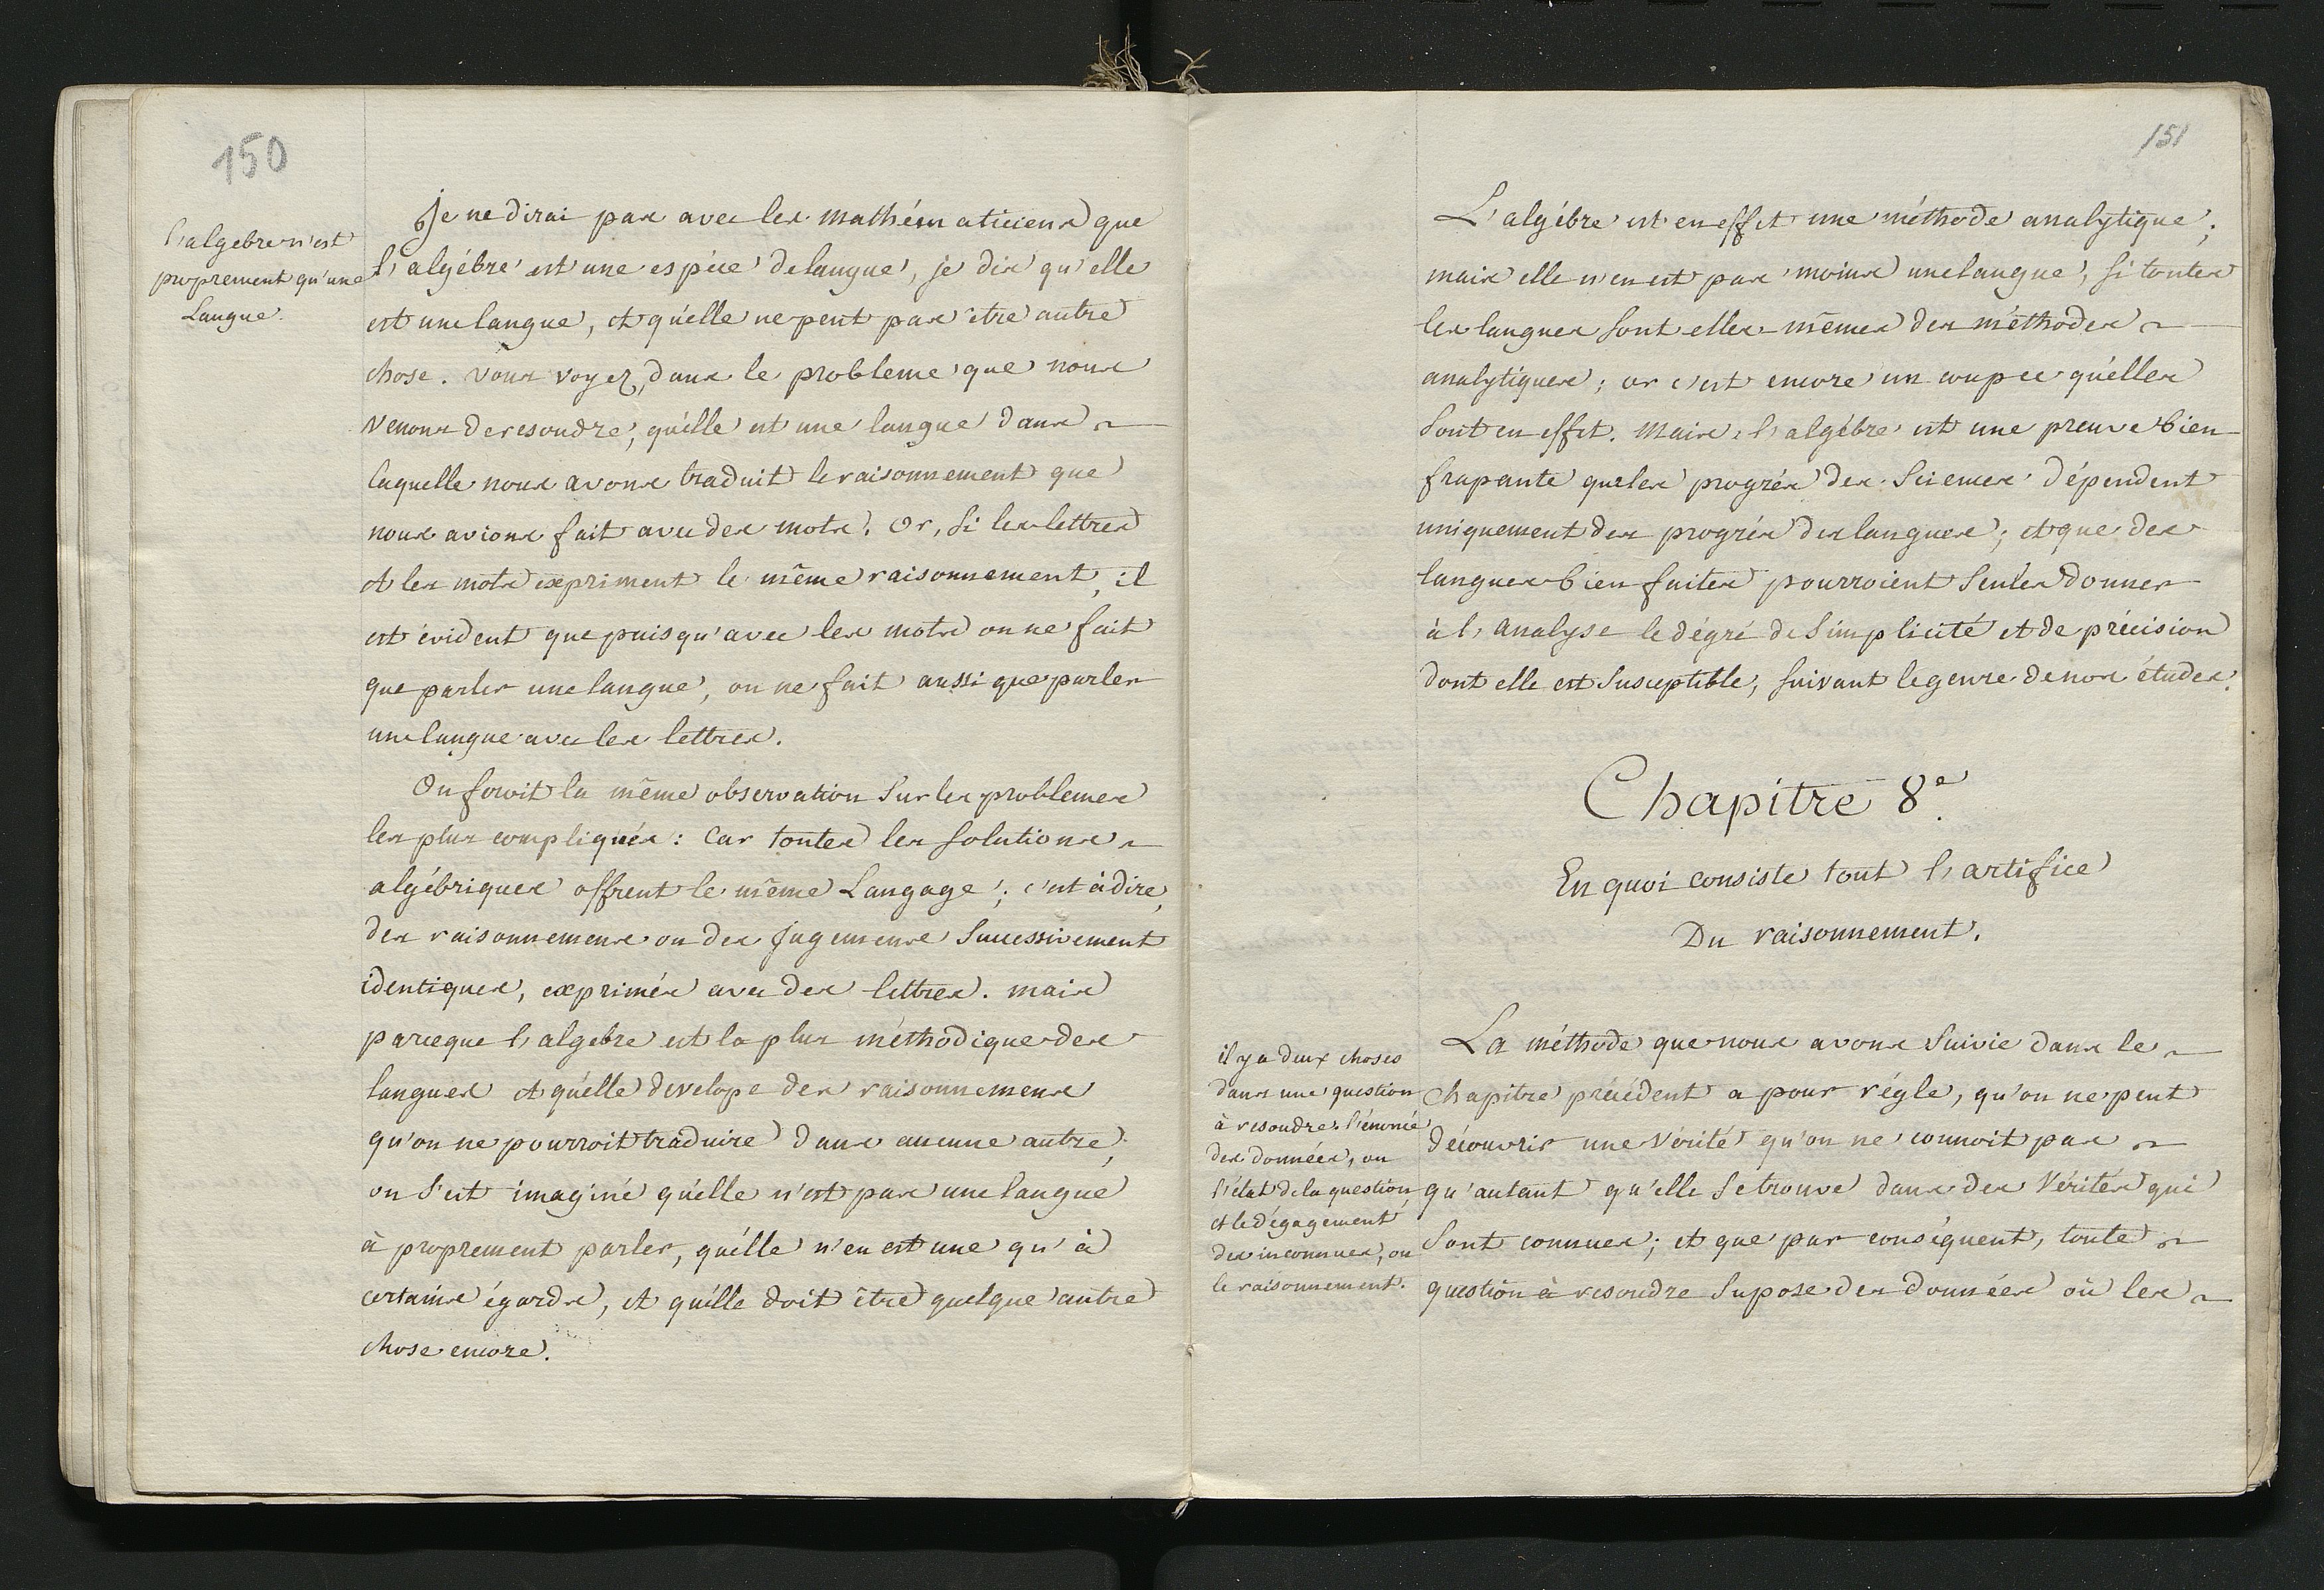 150
l'algebre n'est
proprement qu'une
Langue.
Je ne dirai pas avec les mathématiciens que
l'algébre est une espéce de langue, je dis qu'elle
est une langue, et qu'elle ne peut pas être autre
chose. Vous voyez, dans le probleme que nous
venons de resoudre, qu'elle est une langue dans
laquelle nous avons traduit le raisonnement que
nous avions fait avec des mots. Or, si les lettres
et les mots expriment le même raisonnement, il
est évident que puisqu'avec les mots on ne fait
que parler une langue, on ne fait aussi que parler
une langue avec les lettres.
On feroit la même observation sur les problemes
les plus compliqués: car toutes les solutions
algébriques offrent le même Langage; c'est à dire,
des raisonnemens ou des jugemens successivement
identiques, exprimés avec des lettres. mais
parceque l'algebre est la plus méthodique des
langues et qu'elle develope des raisonnemens
qu'on ne pourroit traduire dans aucune autre,
on s'est imaginé qu'elle n'est pas une langue
à proprement parler, qu'elle n'en est une qu'à
certains égards, et qu'elle doit être quelque autre
chose encore.
151
L'algébre est en effet une méthode analytique;
mais elle n'en est pas moins une langue, si toutes
les langues sont elles-mêmes des méthodes
analytiques; or c'est encore un coup ce qu'elles
sont en effet. Mais l'algébre est une preuve bien
frapante que les progrés des Sciences dépendent
uniquement des progrés des langues; et que des
langues bien faites pourroient seules donner
à l'analyse le dégré de simplicité et de précision
dont elle est susceptible, suivant le genre de nos études.
Chapitre 8e.
En quoi consiste tout l'artifice
Du raisonnement.
il y a deux choses
dans une question
à resoudre. l'énoncé
des données, ou
l'état de la question,
et le dégagement
des inconnues, ou
le raisonnement.
La méthode que nous avons suivie dans le
chapitre précédent a pour régle, qu'on ne peut
découvrir une vérité qu'on ne connoit pas
qu'autant qu'elle se trouve dans des vérités qui
sont connues; et que par conséquent, toute
question à resoudre supose des données où les